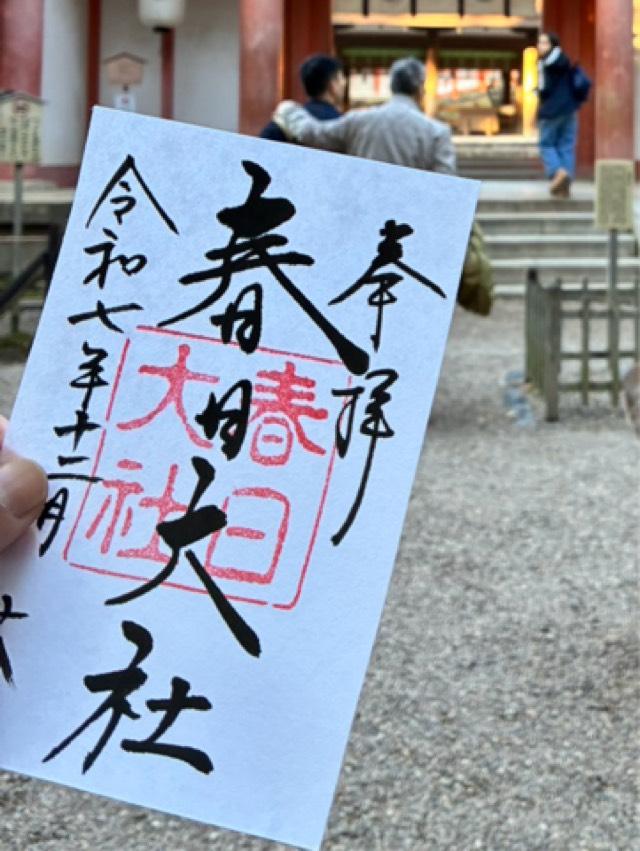 奉拝
春日大社
春日
大社
令和七年十二月